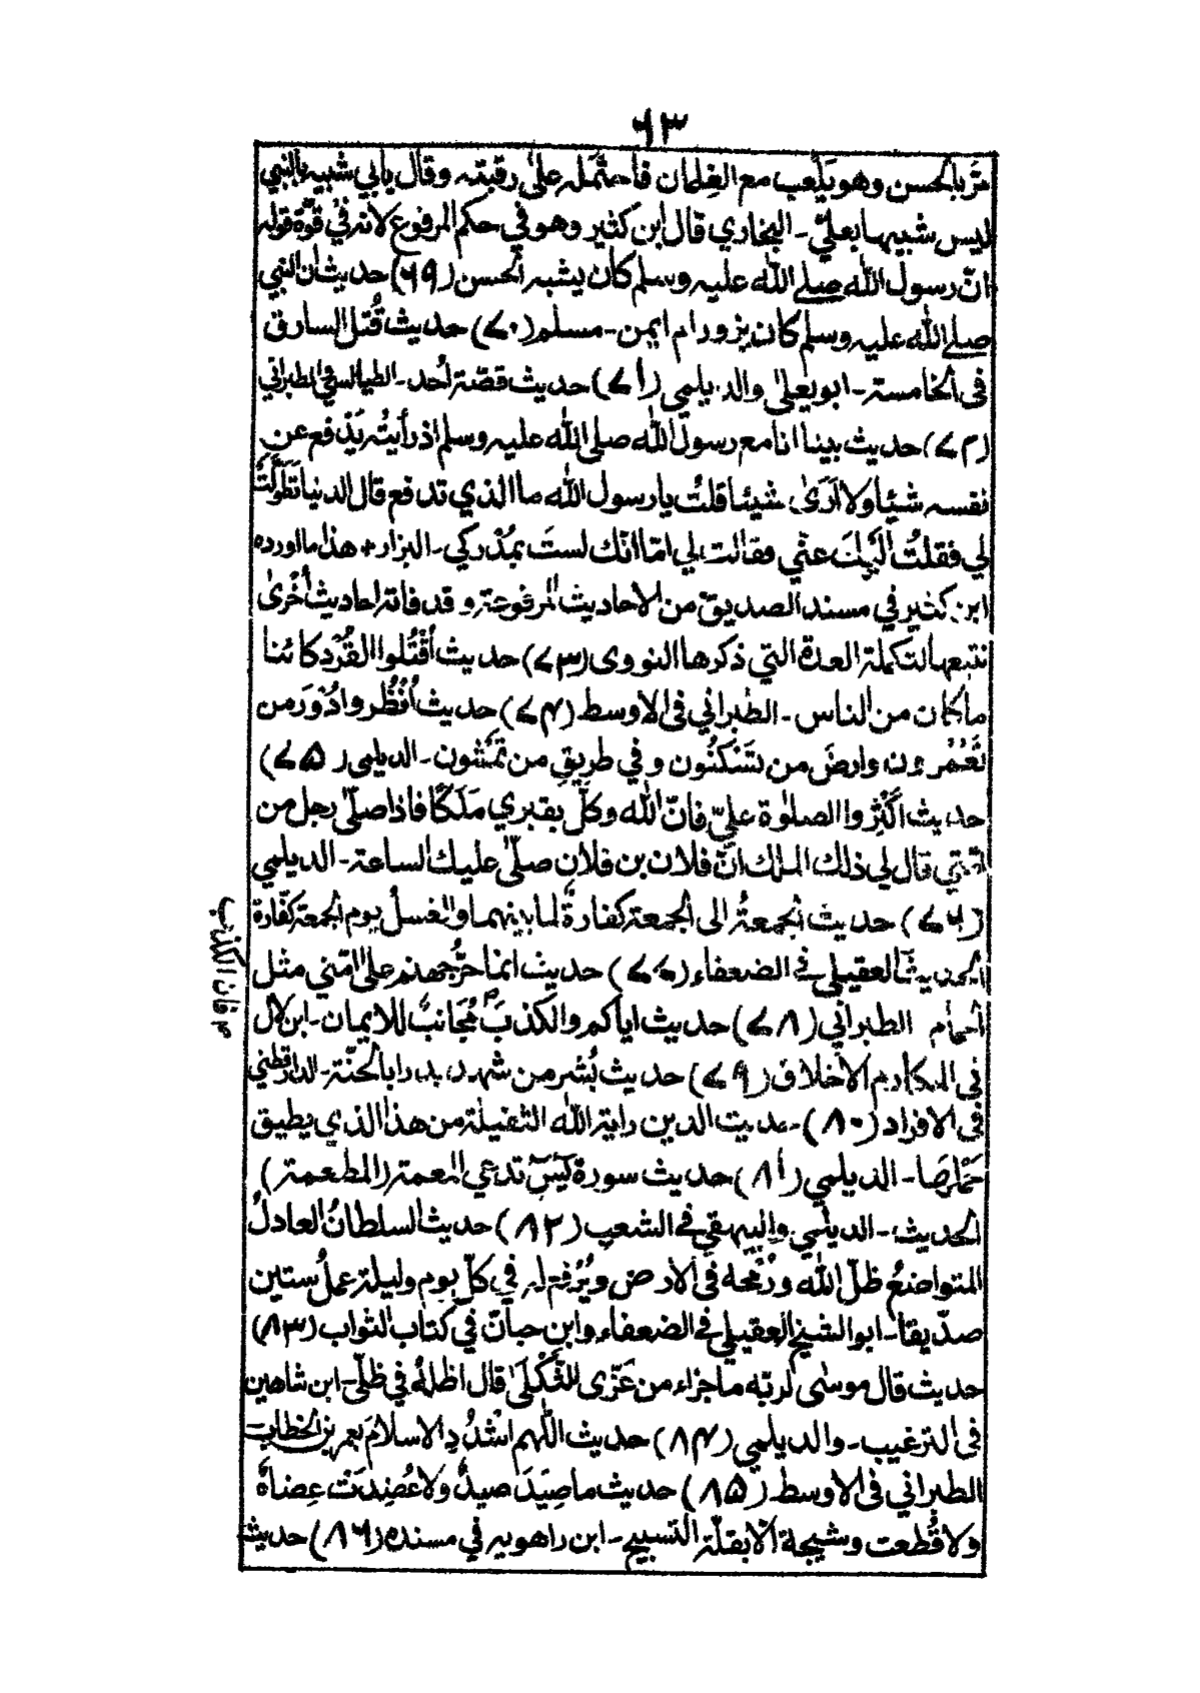 ٦٣
مرّ بالحسن وهو يَلْعب مع الغِلمان فاحتَمله علىٰ رقبته وقال بأبي شبيه بالنبي
ليس شبيها بعليّ ـ البخاري قال ابن كثير وهو في حكم المرفوع لانه في قوّة قوله
انّ رسول الله صلے الله عليه وسلم كان يشبه الحسن (٦٩) حديث ان النبي
صلے الله عليه وسلم كان يزور ام ايمن ـ مسلم (٧٠) حديث قُتل السارق
فى الخامسة ـ ابو يعلىٰ والديلمي (٧١) حديث قصّة اُحد ـ الطيالسي والطبراني
(٧٢) حديث بينا انا مع رسول الله صلى الله عليه وسلم اذ رأيتُه يَدْفع عن
نفسه شيئا ولا اَرَىٰ شيئا قلتُ يا رسول الله ما الذي تدفع قال الدنيا تَطَوَّلَتْ
لي فقلتُ اِلَيْكَ عنّي فقالت لي امّا انّك لستَ بمُدْركي ـ البزار + هذا ما اورده
ابن كثير في مسند الصديق من الاحاديث المرفوعة وقد فاته احاديث اُخْرىٰ
نتبعها لتكملة العدة التي ذكرها النووى (٧٣) حديث اُقْتُلوا القُرَد كائنا
ما كان من الناس ـ الطبراني فى الاوسط (٧٤) حديث اُنْظُروا دُوْرَ من
تَعْمُرون وارضَ من تَسْكنُون وفي طريقِ من تَمْشون ـ الديلمى (٧٥)
حديث اَكْثِروا الصلوٰة عليّ فانّ الله وكّل بقبري مَلَكًا فاذا صلّىٰ رجل من
امّتي قال لي ذلك الملك انّ فلان بن فلان صلّىٰ عليك الساعة ـ الديلمي
(٧٦) حديث الجمعةُ الى الجمعة كفارةٌ لما بينهما والغسلُ يوم الجمعة كفّارة
الحديث العقيلي فى الضعفاء (٧٧) حديث انما حرُّ جهنم على اُمّتي مثل
الحمام الطبراني (٧٨) حديث اياكم والكذبَ مُجَانبٌ للايمان ـ ابن لال
فى المكارم الاخلاق (٧٩) حديث بُشر من شهد بدرا بالجنّة ـ الدارقطني
فى الافراد (٨٠) ـ حديث الدين راية الله الثقيلة من هذا الذي يطيق
حَمْلَهَا ـ الديلمي (٨١) حديث سورة يٰسٓ تدعي المعمة (المطعمة)
الحديث ـ الديلمي والبيهقي فى الشعب (٨٢) حديث السلطانُ العادلُ
المتواضعُ ظلّ الله ورُمْحه فى الارض ويُرْفع له في كلّ يوم وليلة عملُ ستين
صدّيقا ـ ابو الشيخ العقيلي فى الضعفاء وابن حبان في كتاب الثواب (٨٣)
حديث قال موسىٰ لربّه ما جزاء من عَزّى للثَّكْلَىٰ قال اظلهُ في ظلّي ـ ابن شاهين
فى الترغيب ـ والديلمي (٨٤) حديث اللّٰهم اشْدُدِ الاسلامَ بعمر بن الخطاب
الطبراني فى الاوسط (٨٥) حديث ما صِيْدَ صيدٌ ولا عُضِدَتْ عِضاةٌ
ولا قُطعت وشيجة الا بقلّة التسبيح ـ ابن راهويه في مسنده (٨٦) حديث
م فان الكذب